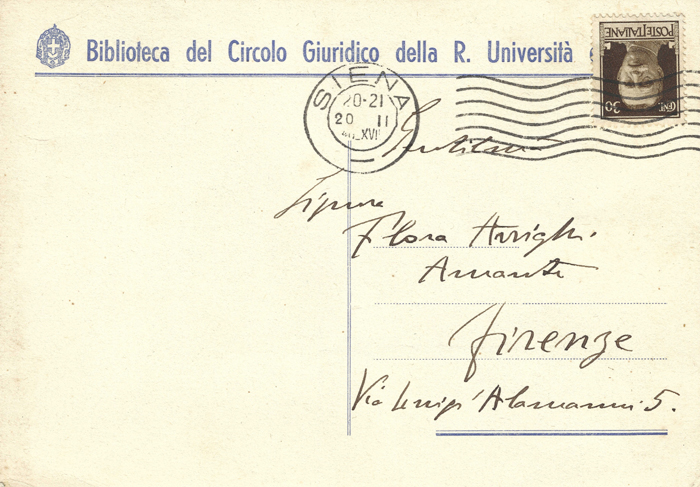 Biblioteca del Circolo Giuridico della R. Università
POSTE ITALIANE
CENT. 30
SIENA
20-21
20 II
XVII
Gentilma
Signora
Flora Arrighi
Amante
Firenze
Via Luigi Alamanni 5.